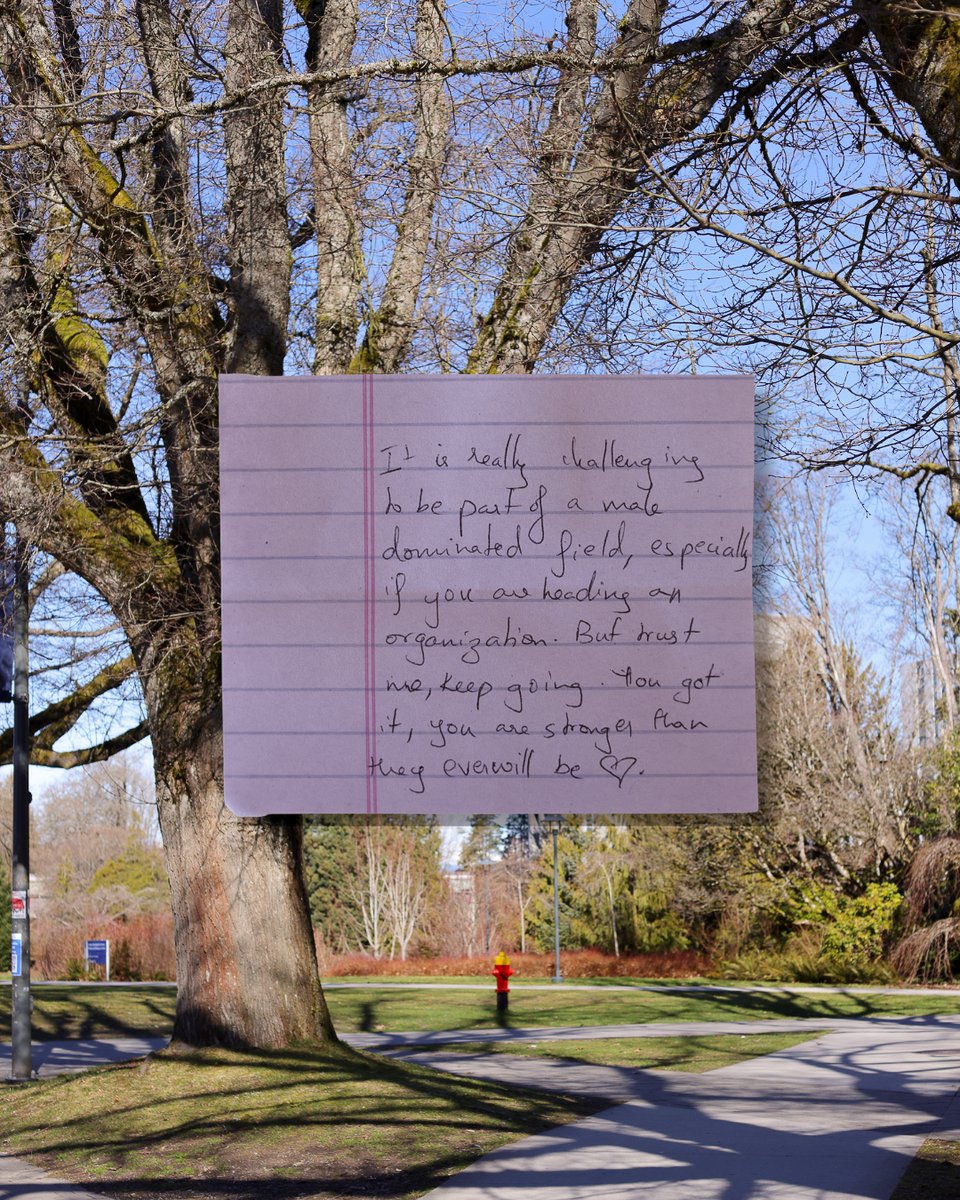 It is really challenging
to be part of a male
dominated field, especially
if you are heading an
organization. But trust
me, keep going. You got
it, you are stronger than
they ever will be ♡.